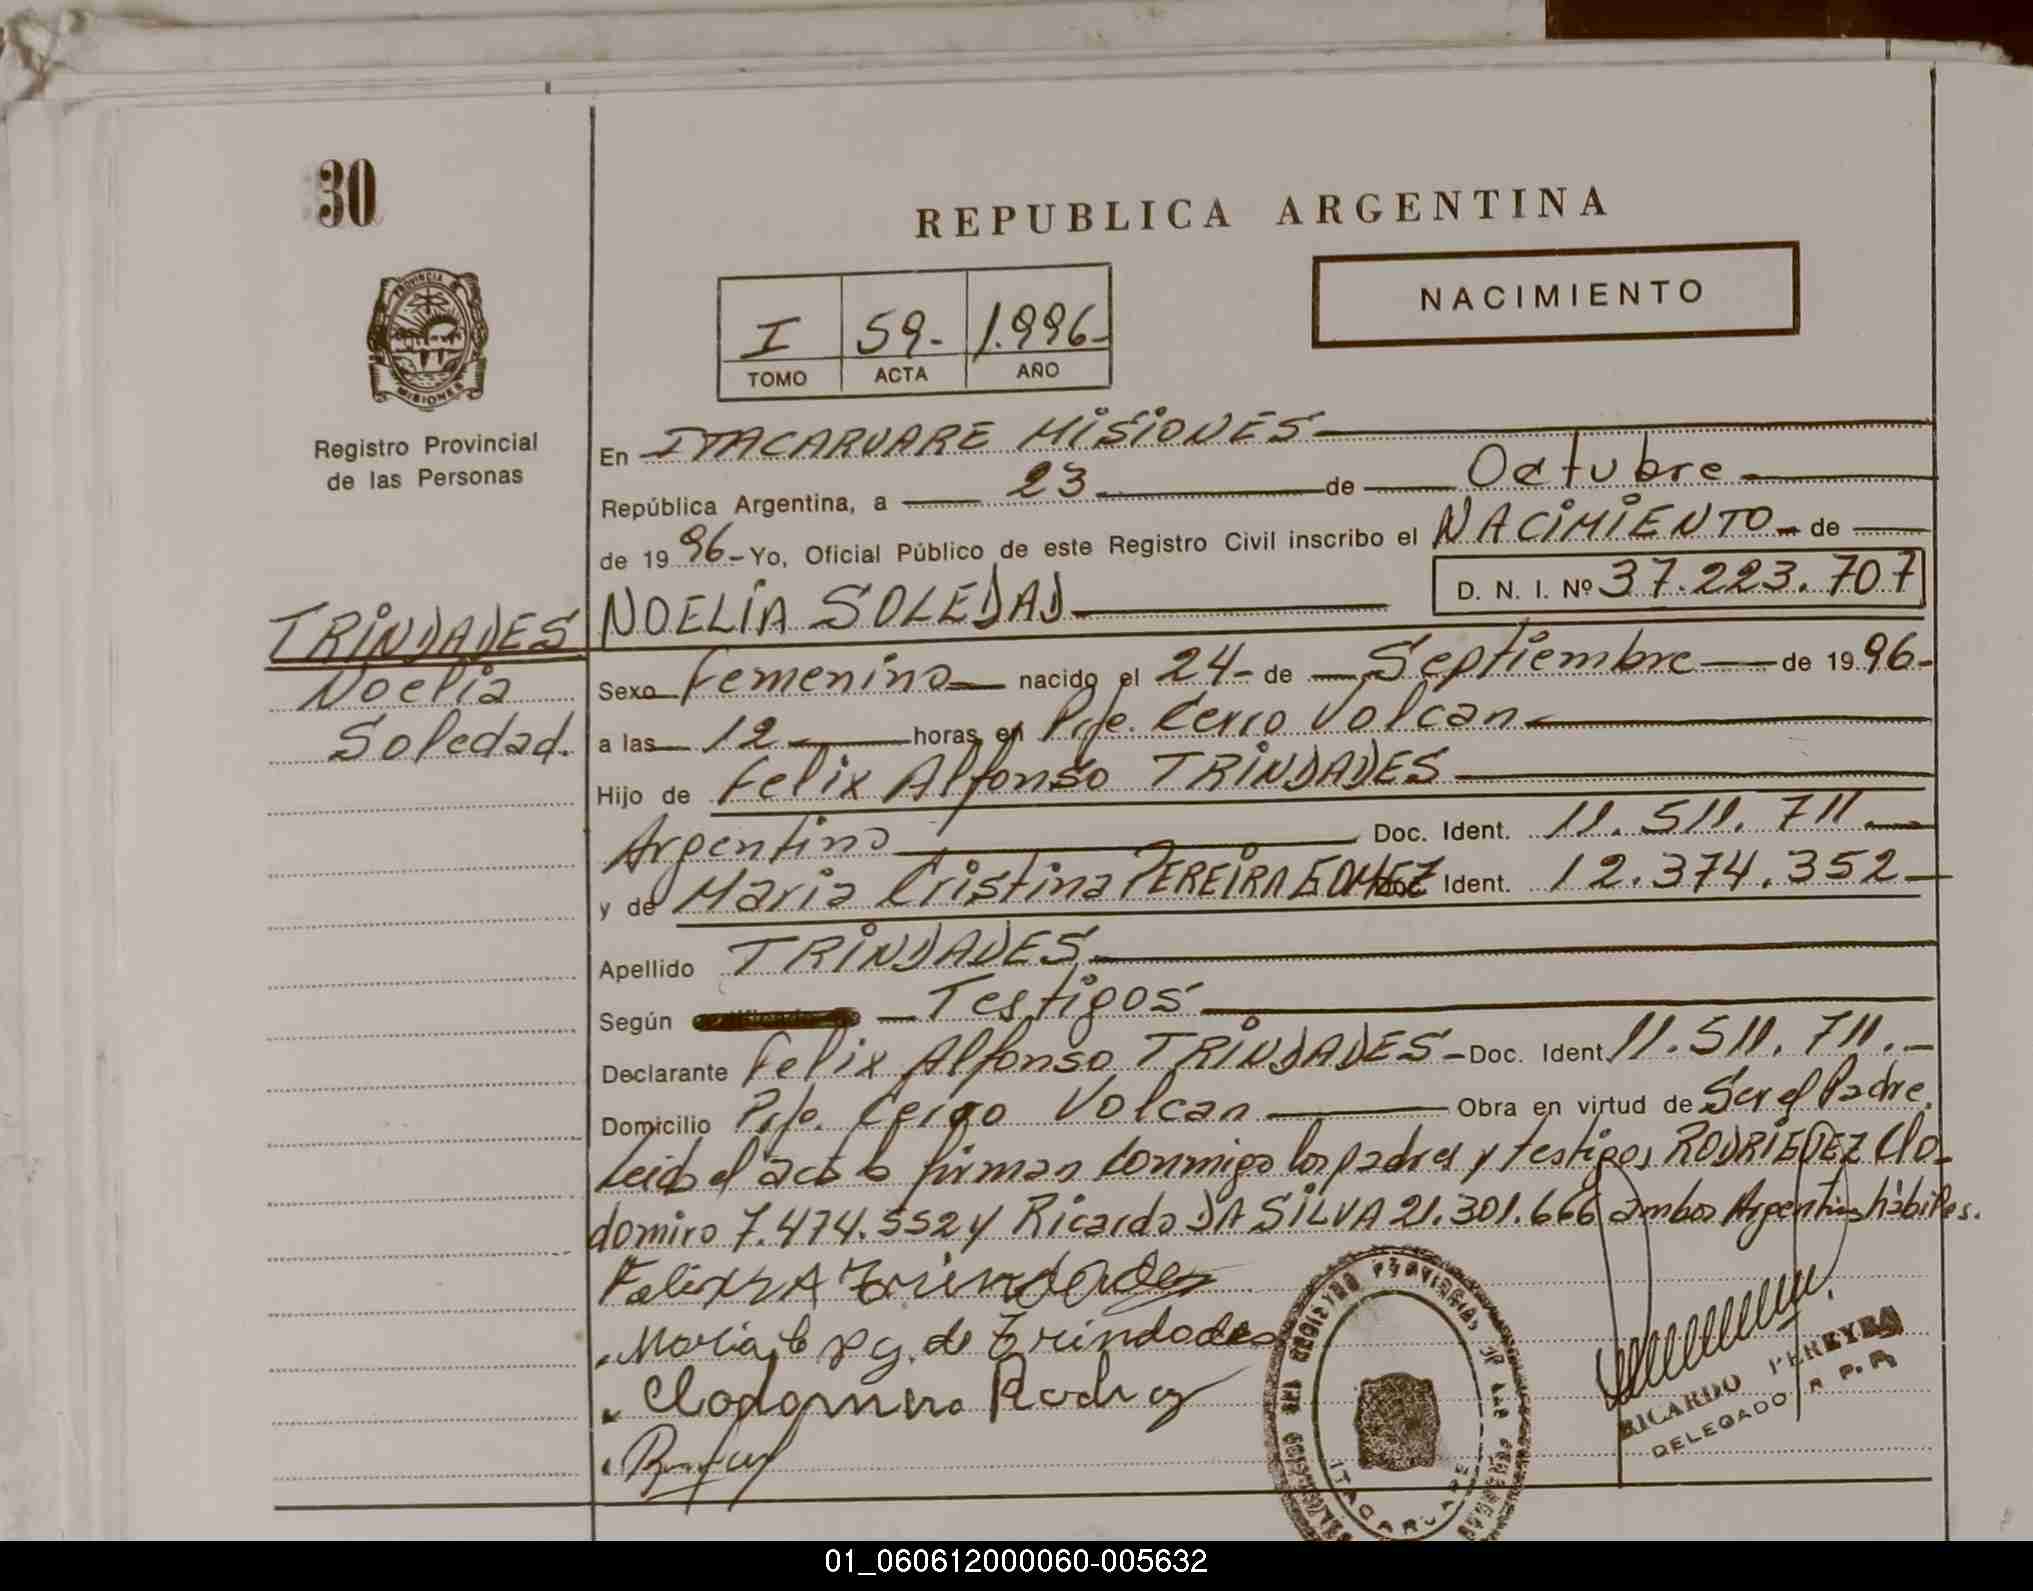 30
REPUBLICA ARGENTINA
NACIMIENTO
I 59- 1.996-
TOMO ACTA AÑO
PROVINCIA
MISIONES
Registro Provincial
de las Personas
En ITACARUARE MISIONES
República Argentina, a 23 de Octubre
de 19 96- Yo, Oficial Público de este Registro Civil inscribo el NACIMIENTO de
NOELIA SOLEDAD D. N. I. Nº 37.223.707
TRINDADES
Noelia
Soledad.
Sexo Femenino nacido el 24- de Septiembre de 19 96-
a las 12 horas en Pje. Cerro Volcan
Hijo de Felix Alfonso TRINDADES
Argentino Doc. Ident. 11.511.711.
y de Maria Cristina PEREIRA GOMEZ Doc. Ident. 12.374.352
Apellido TRINDADES
Según Testigos
Declarante Felix Alfonso TRINDADES - Doc. Ident. 11.511.711.
Domicilio Pje. Cerro Volcan Obra en virtud de Ser el Padre.
Leido el acta firman conmigo los padres y testigos RODRIGUEZ Clo-
domiro 7.474.552 y Ricardo DA SILVA 21.301.666 ambos Argentinos hábiles.
Trindades
Maria C P G. de Trindades
Clodomiro
RICARDO PEREYRA
DELEGADO R. P. P.
REGISTRO PROVINCIAL DE LAS PERSONAS
ITACARUARE
01_060612000060-005632